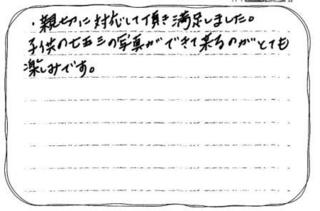 ・親切に対応して頂き満足しました。
子供の七五三の写真ができて来るのがとても
楽しみです。